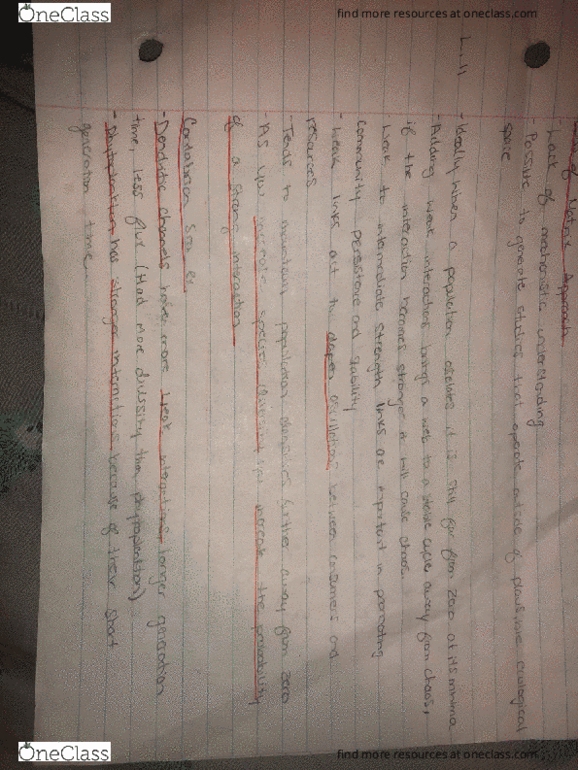 OneClass
find more resources at oneclass.com
Matrix Approach
- Lack of mechanistic understanding
- Possible to generate studies that operate outside of plausible ecological
space
L-11
- Ideally when a population oscilates it is still far from zero at its minima
- Adding weak interactions brings a web to a stable cycle away from chaos,
if the interaction becomes stronger it will cause chaos.
- Weak to intermediate strength links are important in promoting
community persistence and stability
- Weak links act to dapen oscillations between consumers and
resources
- Tends to maintain population densities further away from zero
- As you increase species you increase the probability
of a strong interaction
- Dendritic channels have more weak interactions, longer generation
time, less flux (Had more diversity than phytoplankton)
- Phytoplankton has stronger interactions because of their short
generation time
OneClass
find more resources at oneclass.com